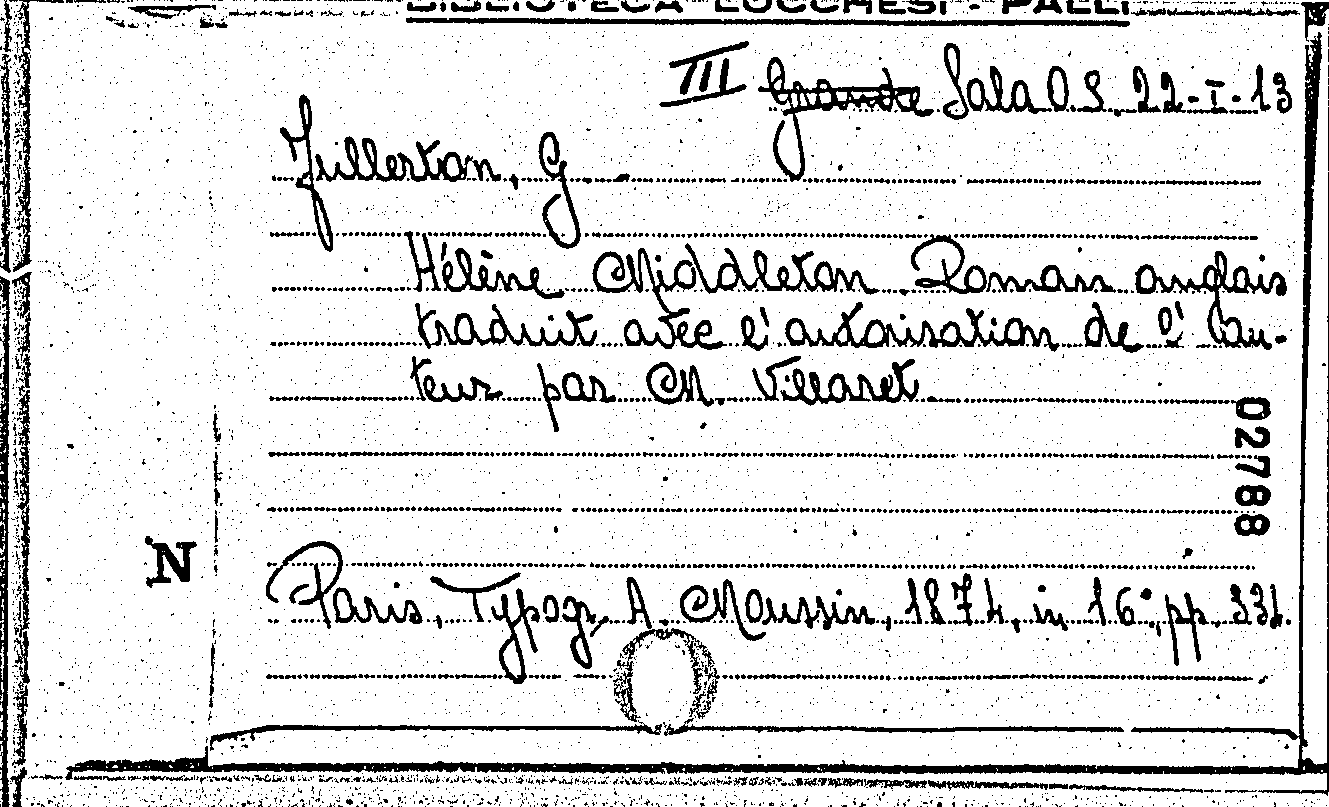 BIBLIOTECA LUCCHESI - PALLI
III Grande Sala O.S. 22-I-13
Fullerton, G.
Hélène Middleton. Roman anglais
traduit avec l'autorisation de l'au-
teur par M. Villaret.
02788
N
Paris, Typogr. A. Moussin, 1874, in 16°, pp. 331.